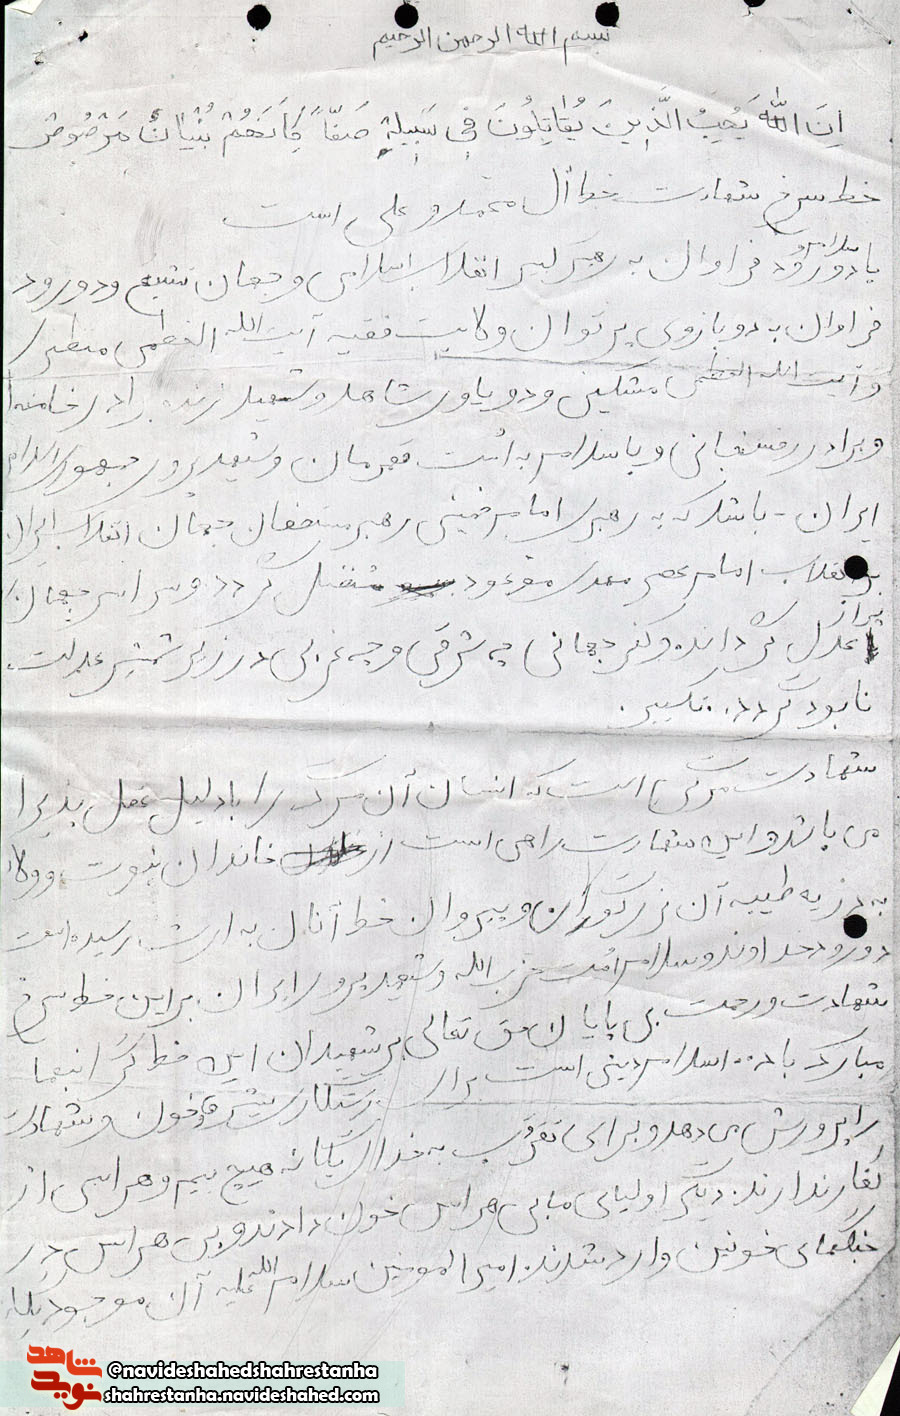 بسم الله الرحمن الرحیم
اِنَ اللّٰهَ یُحِبُ الَّذینَ یُقاتِلُونَ فی سَبیلِهِ صَفّاً کَاَنَهُمْ بُنْیانٌ مَرْصُوصْ
خط سرخ شهادت خط آل محمد و علی است
با سلام و درود فراوان به رهبر کبیر انقلاب اسلامی و جهان تشیع و دورود
فراوان به دو بازوی پر توان ولایت فقیه آیت الله العظمی منتظری
و آیت الله العظمی مشکینی و دو یاور شاهد و شهید زنده برادر خامنه‌ا
و برادر رفسنجانی و با سلام به امت قهرمان و شهید پرور جمهوری اسلام
ایران - باشد که به رهبری امام خمینی رهبر مستضعفان جهان انقلاب ایران
به انقلاب امام عصر مهدی موعود متصل گردد و سراسر جهان را
پر از
عدل گرداند و کفر جهانی چه شرقی و چه غربی در زیر شمشیر عدالت
نابود گردد. تکبیر.
شهادت مرگی است که انسان آن مرگ را با دلیل عقل پذیرا
می باشد و این شهادت راهی است از خاندان نبوت و ولا
به ذریه طیبه آن بزرگواران و پیروان خط آنان به ارث رسیده است
دورود خداوند و سلام امت حزب الله و شهید پرور ایران بر این خط سرخ
شهادت و رحمت بی پایان حق تعالی بر شهیدان این خط گرانبها
مبارک باد. اسلام دینی است برای
را پرورش می دهد و برای تقرب به خدای یگانه هیچ بیم و هراسی از
کفار ندارند. دیگر اولیای ما بی هراس خون دادند و بی هراس در
جنگهای خونین وارد شدند. امیر المومنین سلام الله علیه آن موجود یکه
شاهد
نوید
@navideshahedshahrestanha
shahrestanha.navideshahed.com